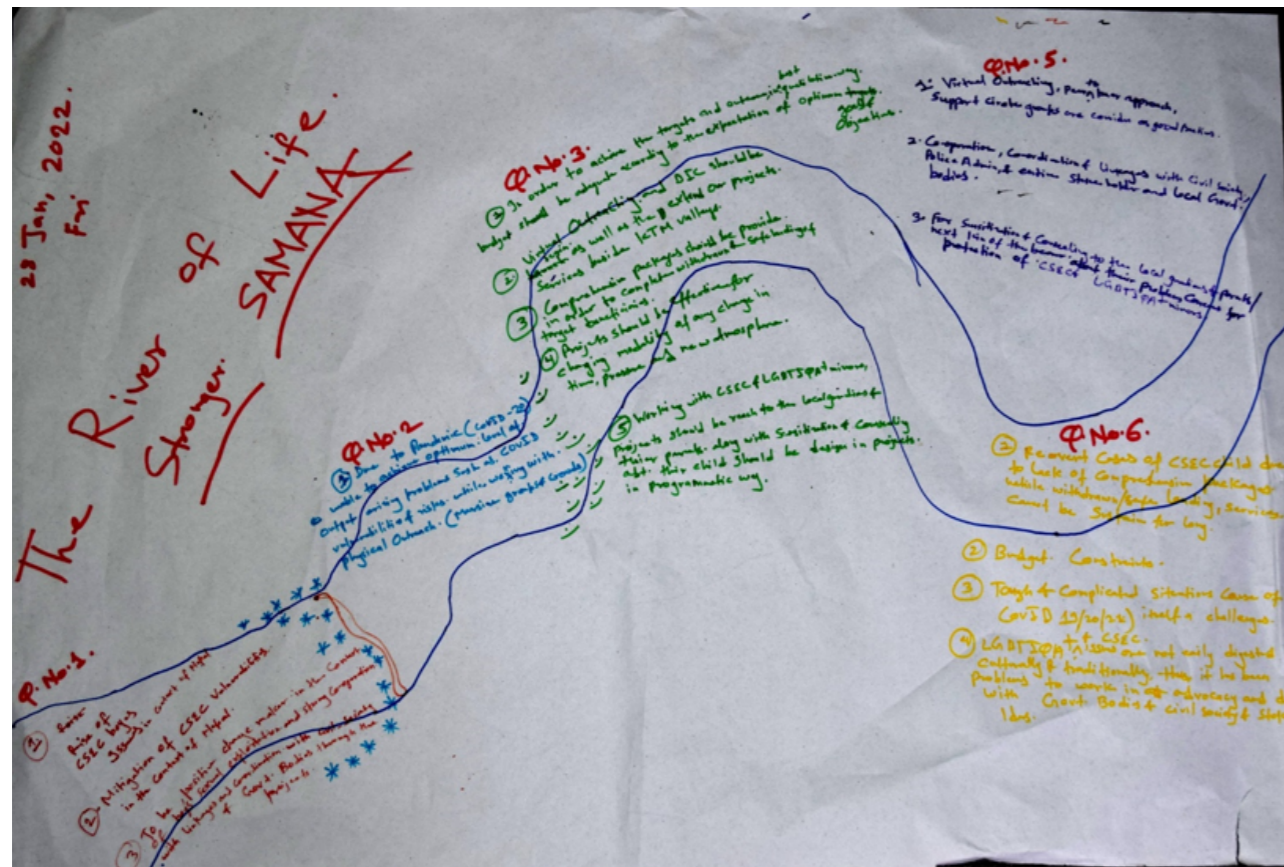 28 Jan, 2022
Fri
The River of Life.
Stronger. SAMANA
Q. No. 1.
① Raise
Rise of
CSEC boys
Issues in context of Nepal
② Mitigation of CSEC Vulnerabilities
in the Context of Nepal.
③ To be positive change maker in the Context
of boys sexual exploitation and strong Cooperation
with linkages and coordination with civil society
& Govt. Bodies through the
projects.
Q No. 2
① Due to Pandemic (COVID-
unable to achieve optimum level of
output arising problems such as COVID
vulnerabilities & risks while working with
physical Outreach. (
Q. No. 3.
① In order to achieve the targets and outcomes
budget should be adequate according to the expectation of optimum targets
goals &
Objectives.
② Virtual Outreaching and DIC should be
as well as the extend our projects
Services besides KTM valleys.
③ Comprehensive packages should be provide
in order to complete withdrawn & safe landing of
target beneficiaries.
④ Projects should be effective for
changing modality of any change in
time, pressure and new atmosphere.
⑤ Working with CSEC & LGBTIQA+ minors,
projects should be reach to the local guardians &
their parents along with Sensitization & Counseling
abt. this child should be design in projects
in programmatic way.
Q. No. 5.
1. Virtual Outreaching, peer to peer approach,
Support Circle groups are consider as good practices.
2. Co-operation, Coordination & linkages with Civil Society,
Police Admin, & entire Stakeholder and Local Govt.
bodies.
3. For Sensitization & Counseling to the local guardians & parents/
next kin of the about their problem Causes for
protection of CSEC & LGBTIQA+ minors.
Q. No. 6.
① Recurrent Cases of CSEC child due
to lack of Comprehensive packages
while withdrawn/safe landing, services
cannot be sustain for long.
② Budget Constraints.
③ Tough & Complicated Situations Cause of
COVID 19/20/22) itself a challenges.
④ LGBTIQA++ & CSEC
issues are not easily digested
culturally & traditionally, thus it has been
problems to work in advocacy and
with Govt. Bodies & civil society &